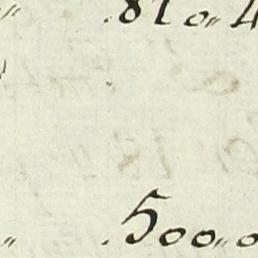 " .81 0" 4
" .500" 0